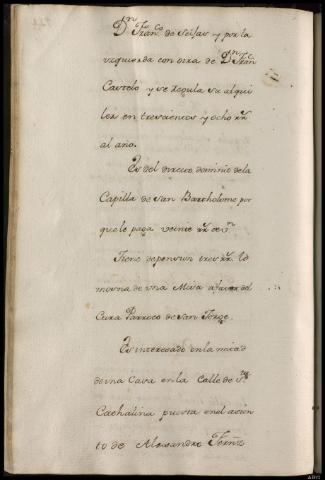 Dn Franco de Seijas y por la
izquierda con otra de Dn Franco
Castelo y se regula su alqui
ler en trescientos y ocho rr
al año.
Es del directo dominio de la
Capilla de San Bartholome por
que le paga veinte rr de vn
Tiene de pension tres rr. li
mosna de una Misa a favor del
Cura Parroco de San Jorge.
Es interesado en la mitad
de una Casa en la Calle de Sta
Cathalina puesta en el asien
to de Alexandro Fernz